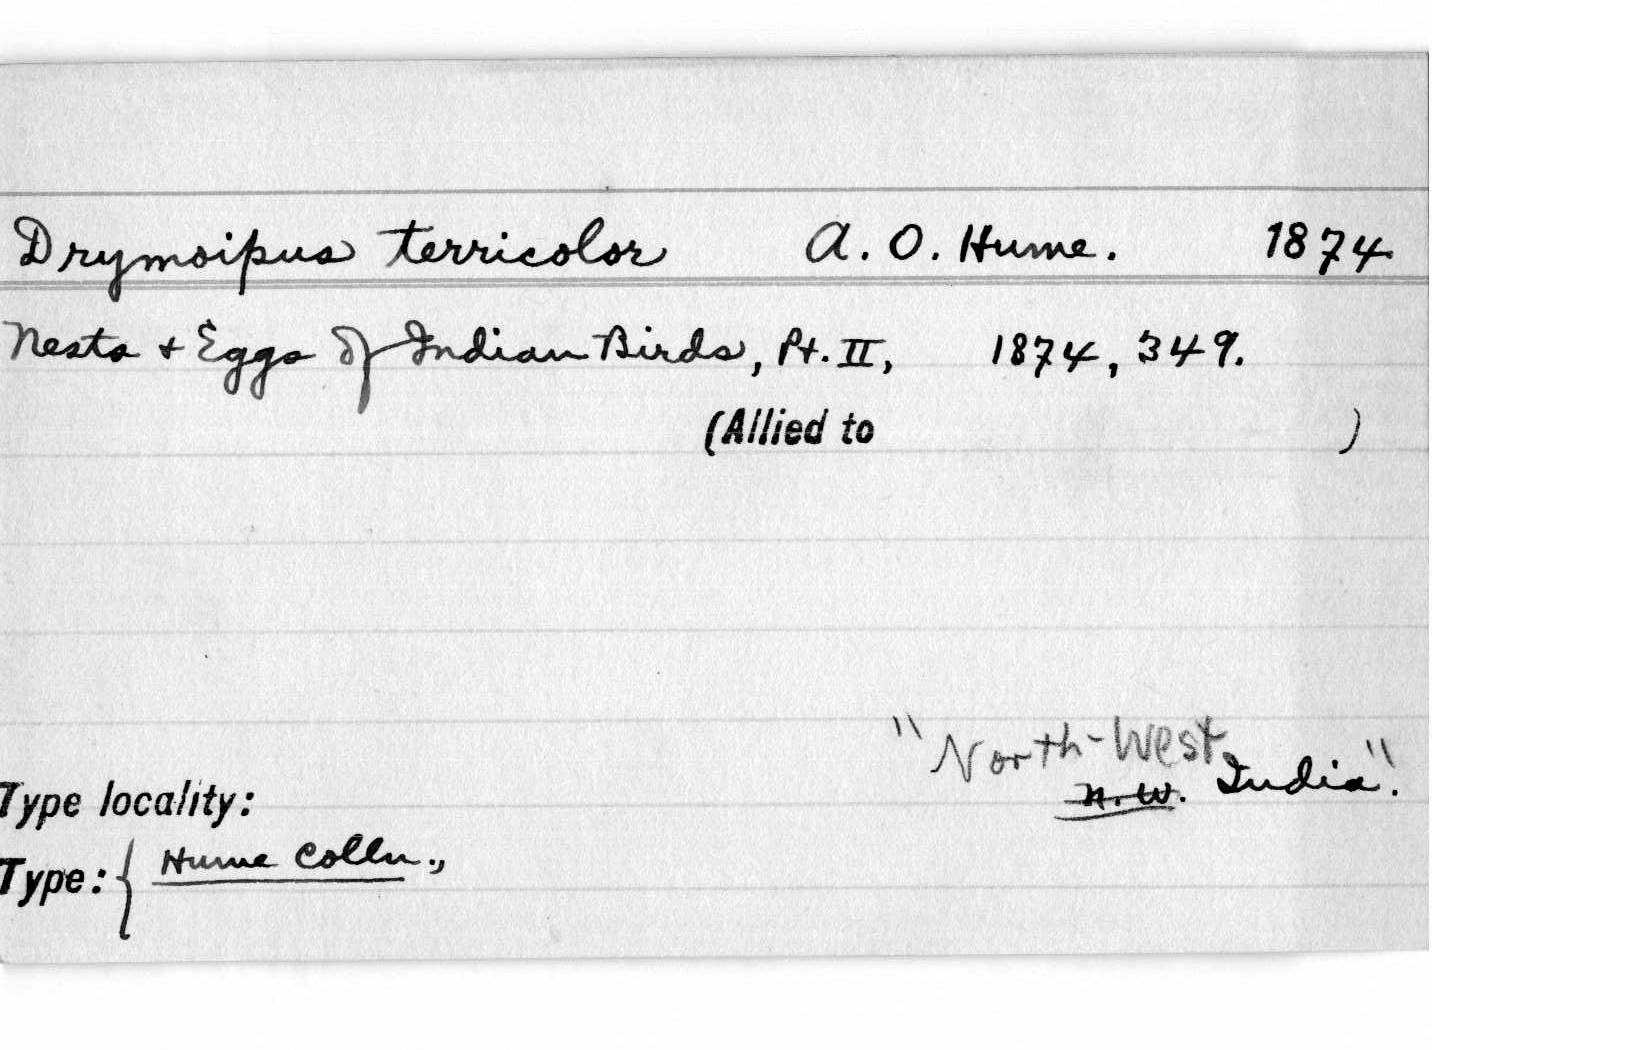 Drymoipus terricolor A. O. Hume. 1874
Nests + Eggs of Indian Birds, Pt. II, 1874, 349.
(Allied to )
"North-West
Type locality: n. w. India."
Type: { Hume Colln.,